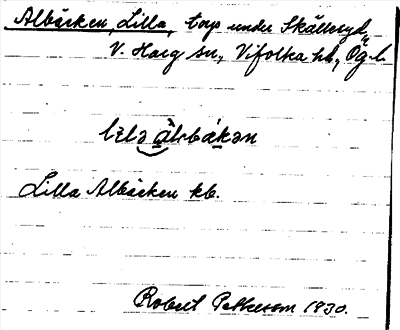 Albäcken, Lilla, torp under Skälleryd,
V. Harg sn., Vifolka hd, Ög. l.
lìlа ālvbákən
Lilla Albäcken kb.
Robert Petterson 1930.